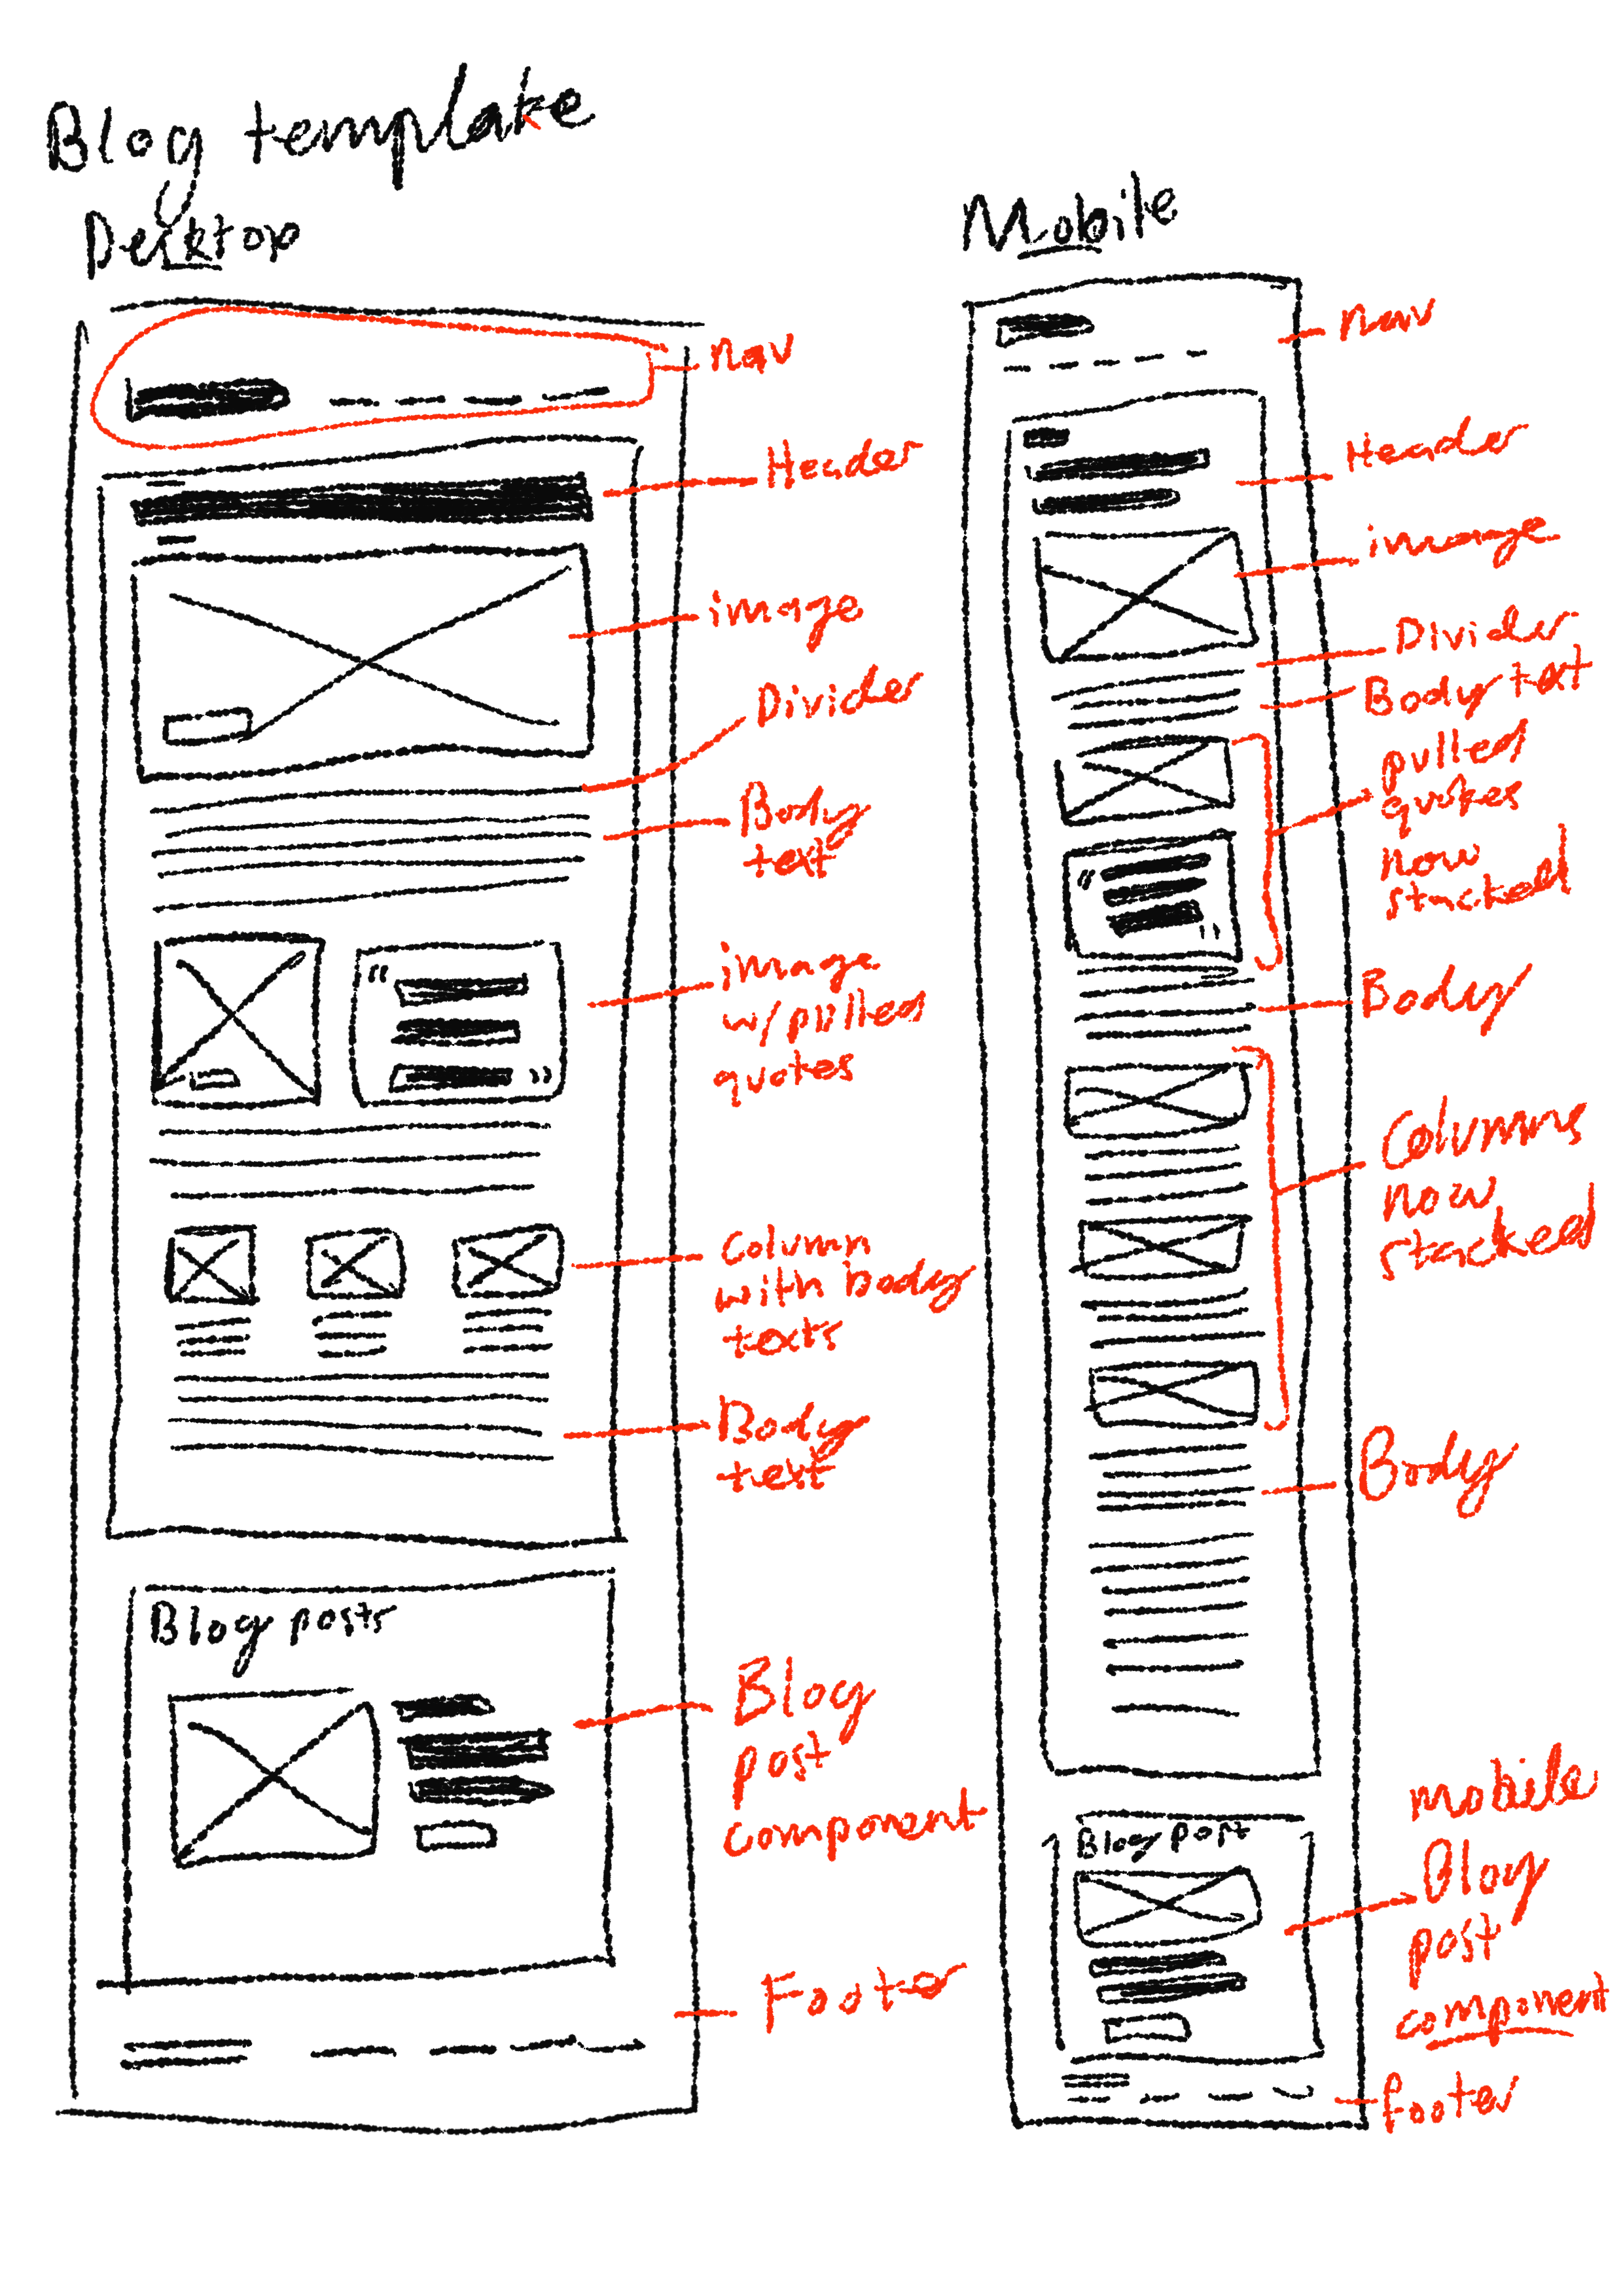 Blog template
Desktop
nav
Header
image
Divider
Body
text
“
”
image
w/ pulled
quotes
column
with body
texts
Body
text
Blog posts
Blog
post
component
Footer
Mobile
nav
Header
image
Divider
Body text
pulled
quotes
now
stacked
“
”
Body
Columns
now
stacked
Body
Blog post
mobile
Blog
post
component
footer